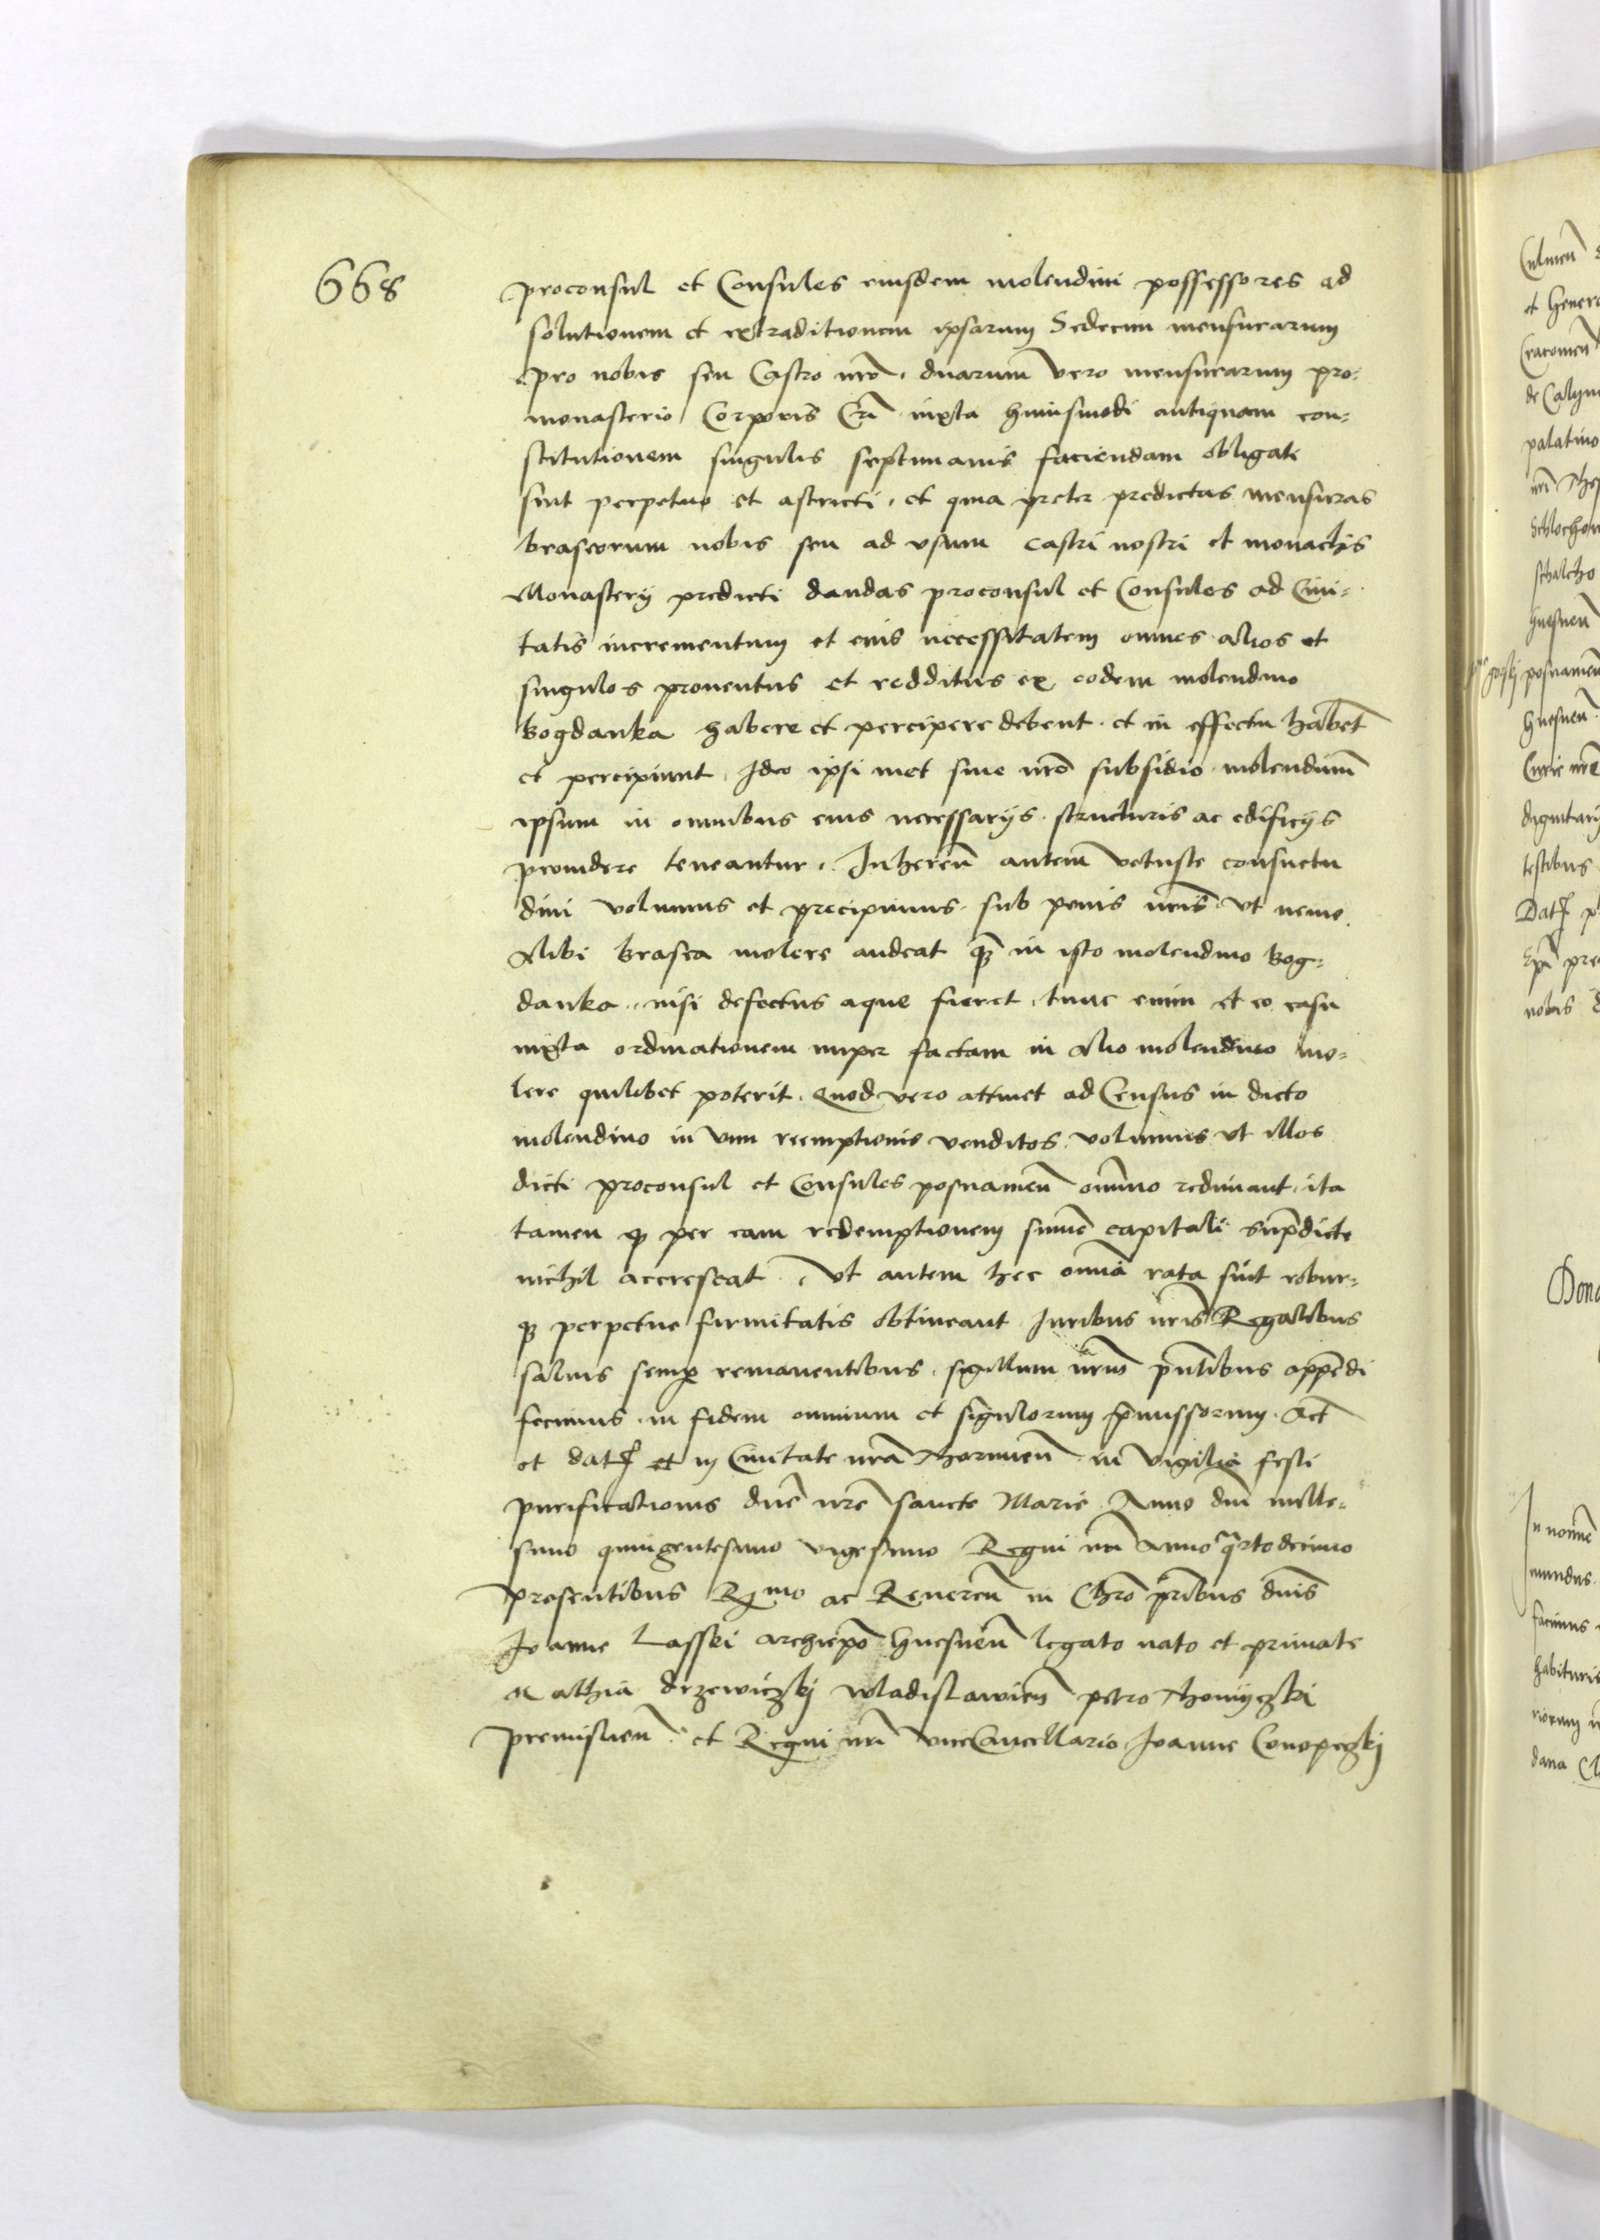 668
proconsul et Consules eiusdem molendini possessores ad
solutionem et extraditionem ipsarum Sedecim mensurarum
pro nobis seu Castro nrō. duarum vero mensurarum pro
monasterio Corporis Cri iuxta huiusmodi antiquam con=
stitutionem singulis septimanis faciendam obligati
sint perpetuo et astricti. et quia preter predictas mensuras
braseorum nobis seu ad vsum castri nostri et monachis
Monasterij predicti dandas proconsul et Consules ad Ciui=
tatis incrementum et eius necessitatem omnes alios et
singulos prouentus et redditus ex eodem molendino
Bogdanka habere et percipere debent. et in effectu habēt
et percipiunt. Ideo ipsi met sine nrō subsidio molendinūm
ipsum in omnibus eius necessarijs structuris ac edificijs
prouidere teneantur. Inhereñ autem vetuste consuetu
dini volumus et precipimus sub penis nrīs vt nemo
Alibi brasea molere audeat q̄ȝ in isto molendino Bog=
danka. nisi defectus aque fieret. tunc enim et eo casu
iuxta ordinationem nuper factam in alio molendino mo=
lere quilibet poterit. Quod vero attinet ad Census in dicto
molendino in vim reemptionis venditos volumus vt illos
dicti proconsul et Consules posnanieñ omnīno redimant. ita
tamen q̄ per eam redemptionem summē capitali suprādicte
nichil accrescat. Vt autem hec omniā rata sint robur=
qȝ perpetue firmitatis obtineant Iuribus nrīs Regalibus
saluis semp̄ remanentibus. sigillum nrūm pn̄tibus appēdi
fecimus in fidem omnium et singulorum p̄missorum. Act̄
et dat et in Ciuitate nrā Thorunieñ in vigilia festi
purificationis dnē nrē sancte Marie Anno dnī mille=
simo quingentesimo vigesimo Regni nrī Anno quartodecimo
presentibus Rͫmo ac Reuereñ in Chrō prībus dnīs
Ioanne Lasski archiepō Gnesneñ legato nato et primate
Mathia drzewiczkj Wladislawieñ petro Thomyczki
premislieñ et Regni nrī viceCancellario. Ioanne Conopaczkj
Culmeñ
et Genero
Cracouieñ
palatino
nrī
posnanieñ
Gnesneñ
Curie nrē
dignitarij
testibus
nobis